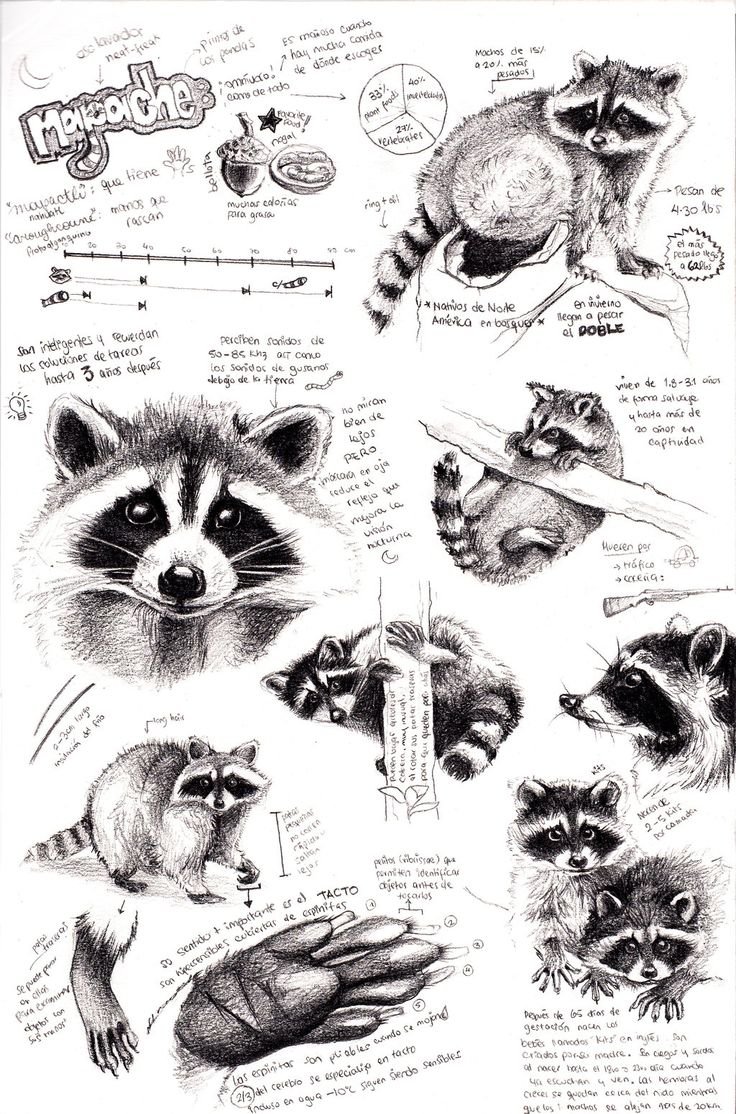 oso lavador
neat-freak
primos de
los pandas
Es mañoso cuando
hay mucha comida
de dónde escoger
¡omnívoro!
come de todo
Mapache:
"mapachtli": que tiene
nahuatl
manos que
rascan
Favorite
food!
bellota
nogal
muchas calorías
para grasa
33%
plant foods
40%
invertebrates
27%
vertebrates
Machos de 15%
a 20% más
pesados!
ring tail
Pesan de
4-30 lbs
el más
pesado llegó
a 62 lbs
* Nativos de Norte
América en bosques *
en invierno
llegan a pesar
el DOBLE
20 30 40 50 60 70 80 90 cm
c/
son inteligentes y recuerdan
las soluciones de tareas
hasta 3 años después
Perciben sonidos de
50-85 KHz así como
los sonidos de gusanos
debajo de la tierra
no miran
bien de
lejos
PERO
máscara en ojo
reduce el
reflejo que
mejora la
visión
nocturna
viven de 1.8-3.1 años
de forma salvaje
y hasta más de
20 años en
captividad
Mueren por
→ tráfico
→ cacería:
2-3cm largo
long hairs
patas
pequeñas
no corren
rápido ni
saltan
lejos
al rotar sus patas traseras
para que queden para atrás
Kits
Nacen de
2-5 kits
por camada
patas
traseras
se puede parar
en ellas
para examinar
objetos con
sus manos
su sentido + importante es el TACTO
son hipersensibles cubiertas de espinitas
pelitos (vibrissae) que
permiten identificar
objetos antes de
tocarlos
1
2
3
4
5
Las espinitas son pliables cuando se mojan
2/3 del cerebro se especializa en tacto
Incluso en agua -10°C siguen siendo sensibles
Después de 65 días de
gestación nacen los
bebés llamados "kits" en inglés. Son
criados por su madre. Son ciegos y sordos
al nacer hasta el día cuando
ya escuchan y ven. Las hembras al
crecer se quedan cerca del nido mientras
que los machos se alejan más de 20km